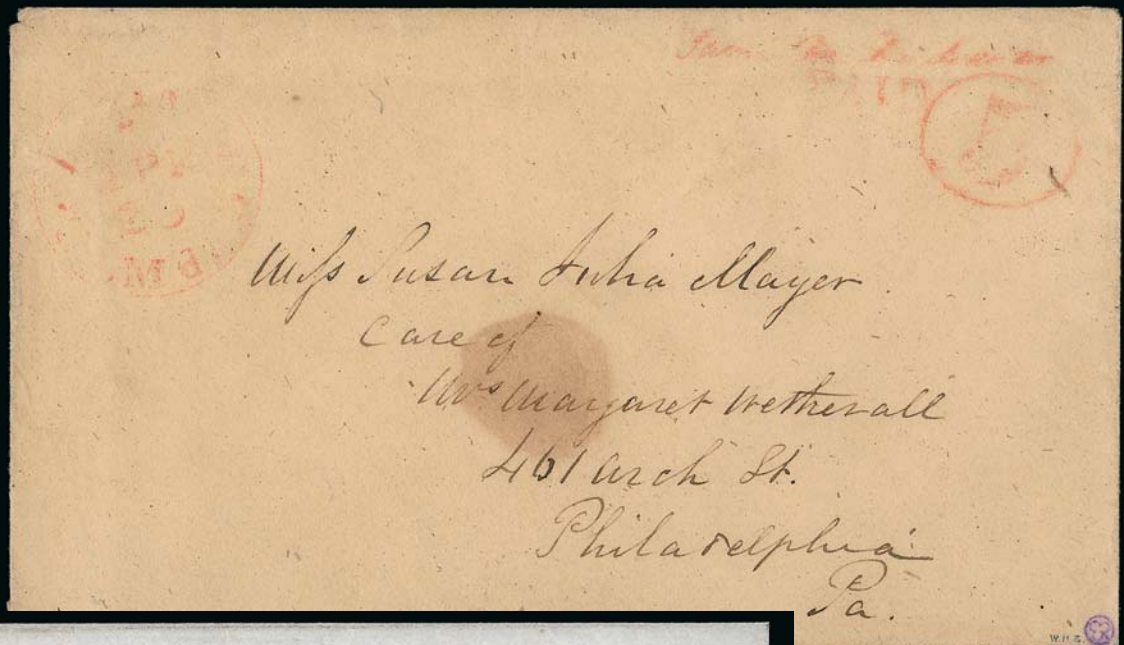 PAID
5
Miss Susan Julia Mayer
Care of
Mrs Margaret Wetherall
461 Arch St.
Philadelphia
Pa.